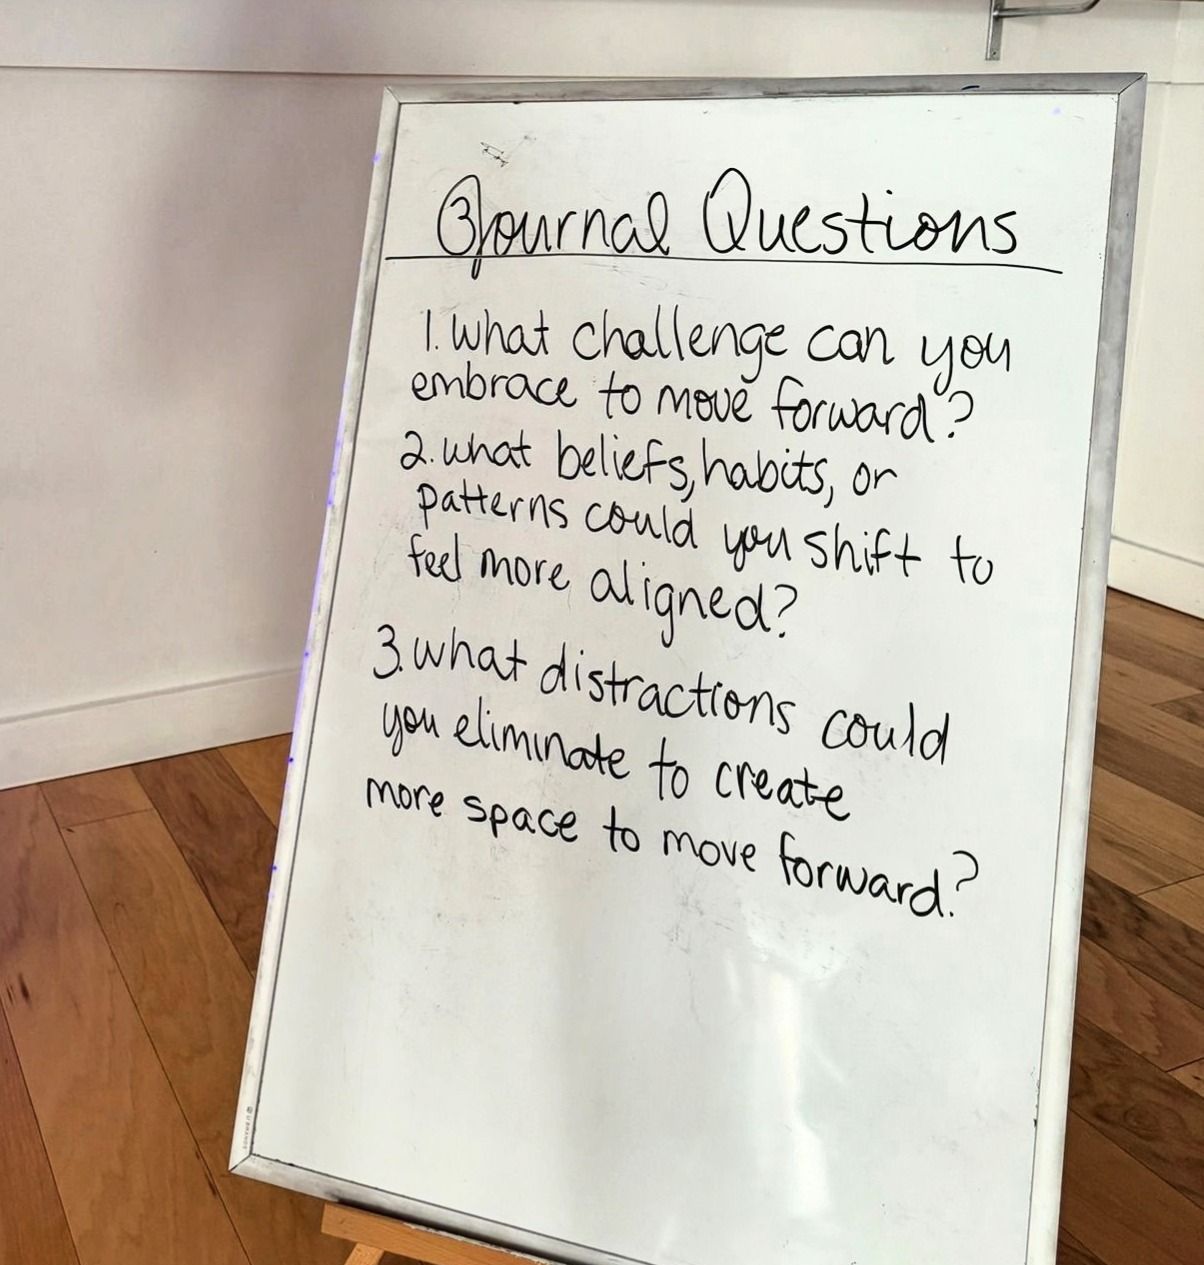 ③Journal Questions
1. What challenge can you
embrace to move forward?
2. what beliefs, habits, or
patterns could you shift to
feel more aligned?
3. what distractions could
you eliminate to create
more space to move forward?